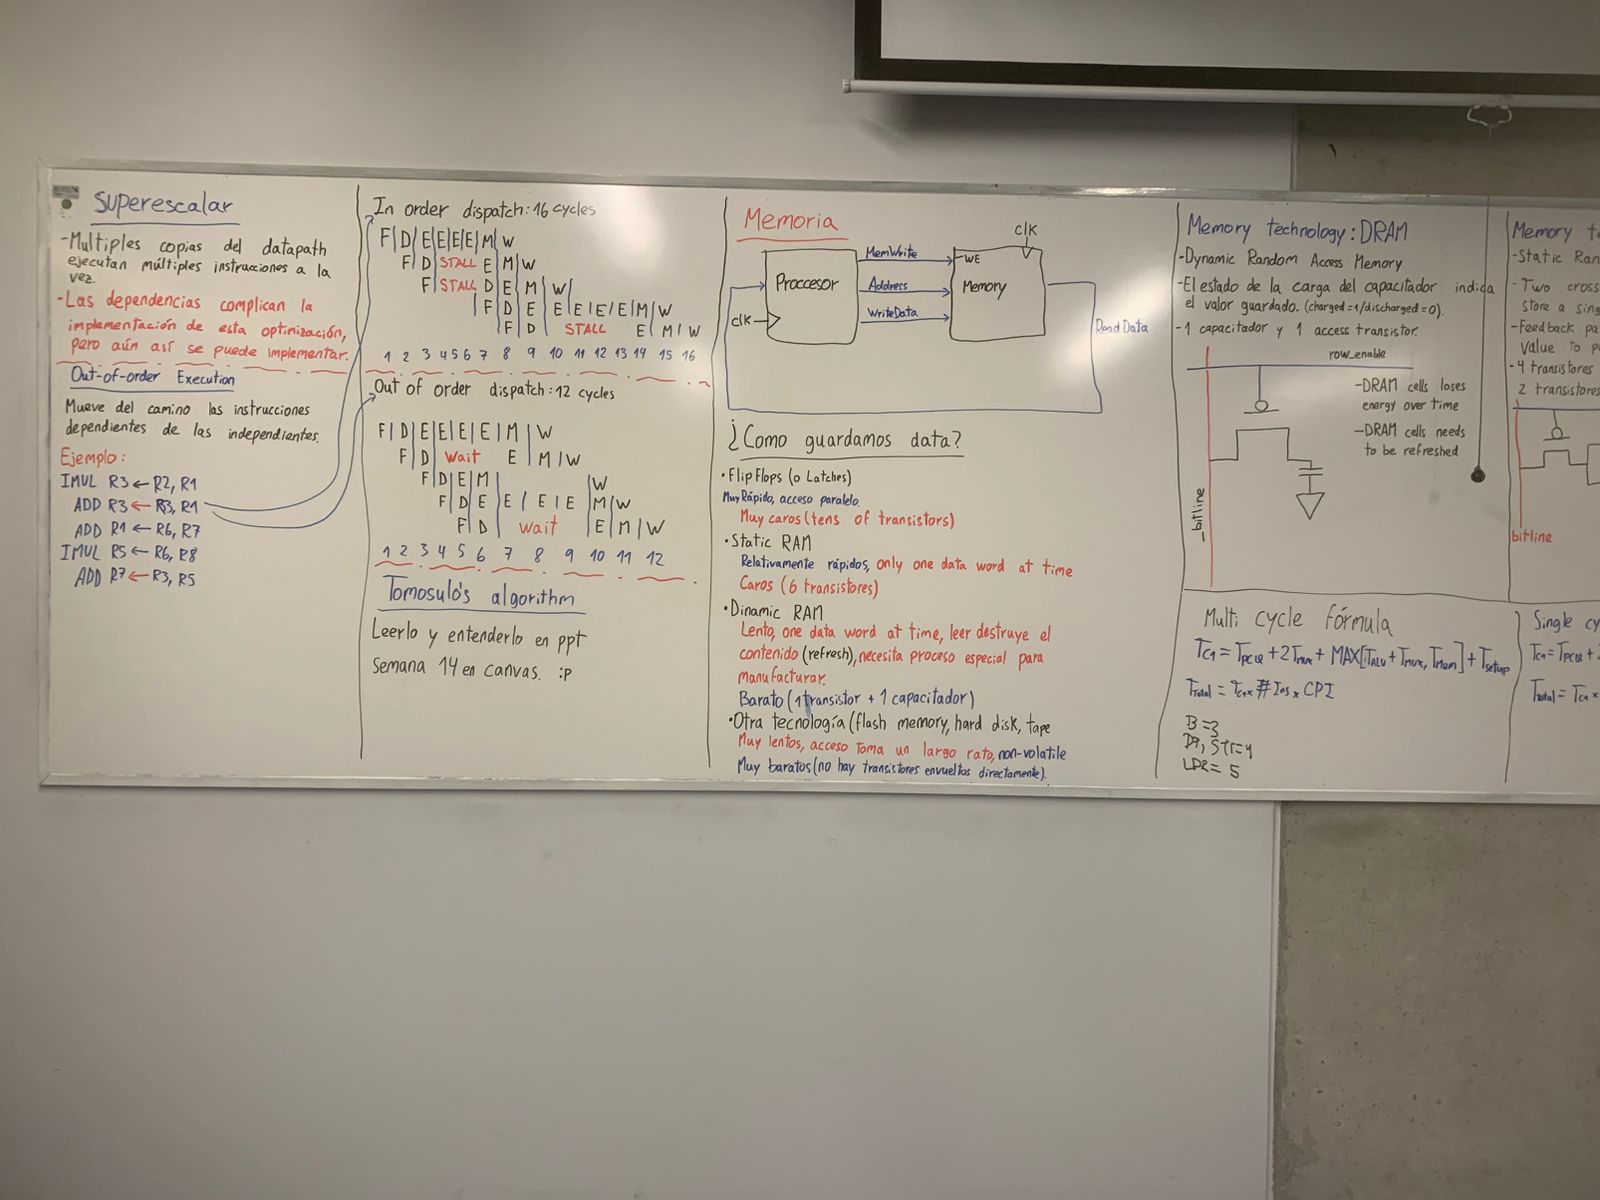 Superescalar
-Multiples copias del datapath
ejecutan múltiples instrucciones a la
vez.
-Las dependencias complican la
implementación de esta optimización,
pero aún así se puede implementar.
Out-of-order Execution
Mueve del camino las instrucciones
dependientes de las independientes.
Ejemplo:
IMUL R3 ← R2, R1
ADD R3 ← R3, R1
ADD R1 ← R6, R7
IMUL R5 ← R6, R8
ADD R7 ← R3, R5
In order dispatch: 16 cycles
F|D|E|E|E|E|M|W
F|D STALL E|M|W
F|STALL D|E|M|W|
|F|D|E|E|E|E|E|M|W
F|D| STALL E|M|W
1 2 3 4 5 6 7 8 9 10 11 12 13 14 15 16
Out of order dispatch: 12 cycles
F|D|E|E|E|E|M|W
F|D| wait E |M|W
F|D|E|M |W
F|D E|E|E|E|M|W
F|D wait |E|M|W
1 2 3 4 5 6 7 8 9 10 11 12
Tomosulo's algorithm
Leerlo y entenderlo en ppt
Semana 14 en canvas. :p
Memoria
clk
Proccesor
clk
MemWrite
Address
WriteData
WE
Memory
ReadData
¿Como guardamos data?
•Flip Flops (o Latches)
Muy Rápido, acceso paralelo.
Muy caros (tens of transistors)
•Static RAM
Relativamente rápidos, only one data word at time
Caros (6 transistores)
•Dinamic RAM
Lento, one data word at time, leer destruye el
contenido (refresh), necesita proceso especial para
manufacturar.
Barato (1 transistor + 1 capacitador)
•Otra tecnología (flash memory, hard disk, tape
Muy lentos, acceso toma un largo rato, non-volatile
Muy baratos (no hay transistores envueltos directamente).
Memory technology: DRAM
-Dynamic Random Access Memory
-El estado de la carga del capacitador indica
el valor guardado. (charged=1/discharged=0).
-1 capacitador y 1 access transistor.
row_enable
-DRAM cells loses
energy over time
-DRAM cells needs
to be refreshed
_bitline
Multi cycle fórmula
Tc1 = Tpcq + 2Tmux + MAX[TALU + Tmux, Tmem] + Tsetup
Ttotal = Tc1 x #Ins x CPI
B=3
DP, STR=4
LDR= 5
Memory t
-Static Ran
-Two cross
store a sing
-Feedback pa
Value to p
-4 transistores
2 transistores
bitline
Single cy
Tc1 = Tpcq +
Ttotal = Tc1 x